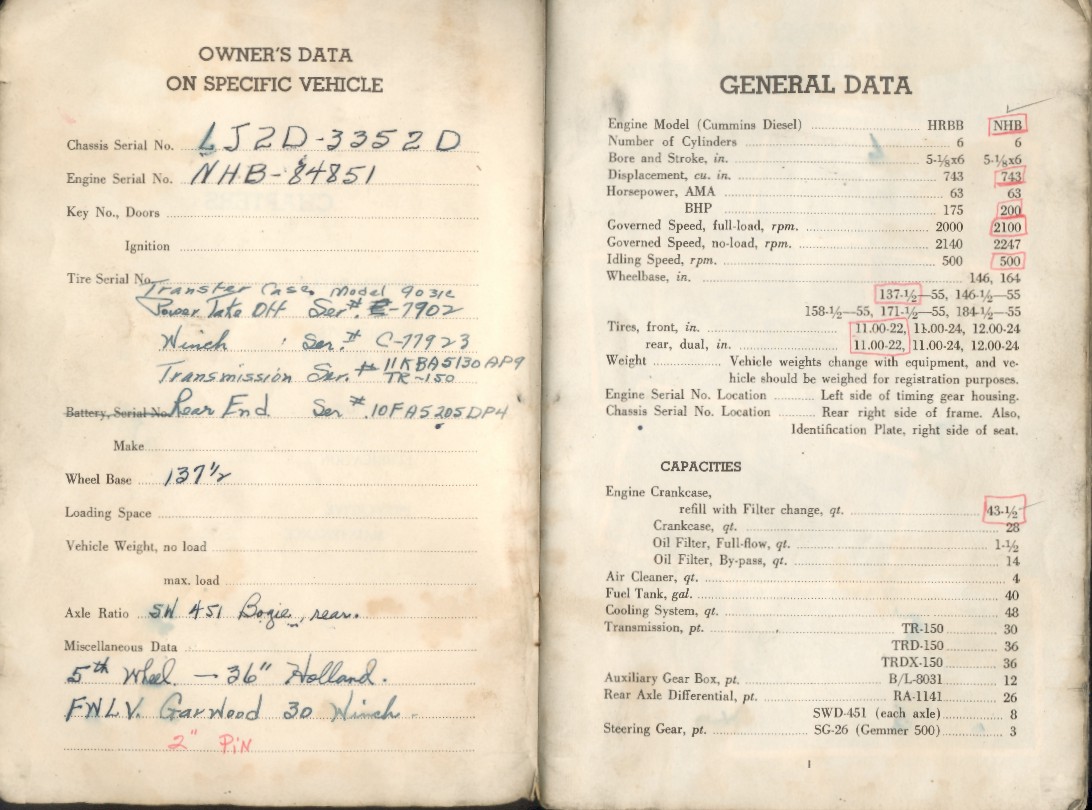 OWNER'S DATA
ON SPECIFIC VEHICLE
Chassis Serial No. LJ2D-3352D
Engine Serial No. NHB-84851
Key No., Doors
Ignition
Tire Serial No.
Transfer Case Model 9031C
Power Take Off Ser#. E-7902
Winch Ser.# C-77923
Transmission Ser. # 11KBA5130AP9
TR-150
Battery, Serial No. Rear End Ser # 10FA5205DP4
Make
Wheel Base 137½
Loading Space
Vehicle Weight, no load
max. load
Axle Ratio SW 451 Bogie, rear.
Miscellaneous Data
5th Wheel - 36" Holland.
FWLV. Garwood 30 Winch
2" PiN
GENERAL DATA
Engine Model (Cummins Diesel) HRBB NHB
Number of Cylinders 6 6
Bore and Stroke, in. 5-⅛x6 5-⅛x6
Displacement, cu. in. 743 743
Horsepower, AMA 63 63
BHP 175 200
Governed Speed, full-load, rpm. 2000 2100
Governed Speed, no-load, rpm. 2140 2247
Idling Speed, rpm. 500 500
Wheelbase, in. 146, 164
137-½—55, 146-½—55
158-½—55, 171-½—55, 184-½—55
Tires, front, in. 11.00-22, 11.00-24, 12.00-24
rear, dual, in. 11.00-22, 11.00-24, 12.00-24
Weight Vehicle weights change with equipment, and ve-
hicle should be weighed for registration purposes.
Engine Serial No. Location Left side of timing gear housing.
Chassis Serial No. Location Rear right side of frame. Also,
Identification Plate, right side of seat.
CAPACITIES
Engine Crankcase,
refill with Filter change, qt. 43-½
Crankcase, qt. 28
Oil Filter, Full-flow, qt. 1-½
Oil Filter, By-pass, qt. 14
Air Cleaner, qt. 4
Fuel Tank, gal. 40
Cooling System, qt. 48
Transmission, pt. TR-150 30
TRD-150 36
TRDX-150 36
Auxiliary Gear Box, pt. B/L-8031 12
Rear Axle Differential, pt. RA-1141 26
SWD-451 (each axle) 8
Steering Gear, pt. SG-26 (Gemmer 500) 3
1